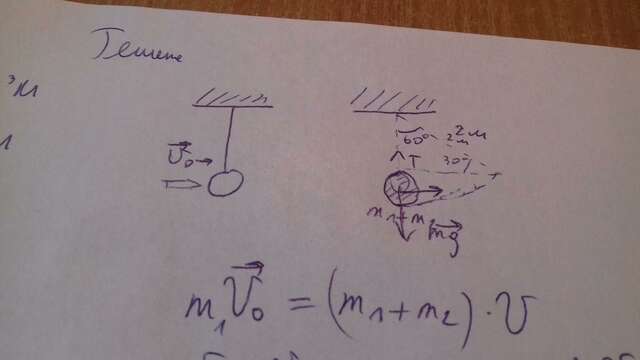 Решение
³м
v₀
60° 2м
T 30°
m₁+m₂
mg
m₁v₀ = (m₁+m₂)·v